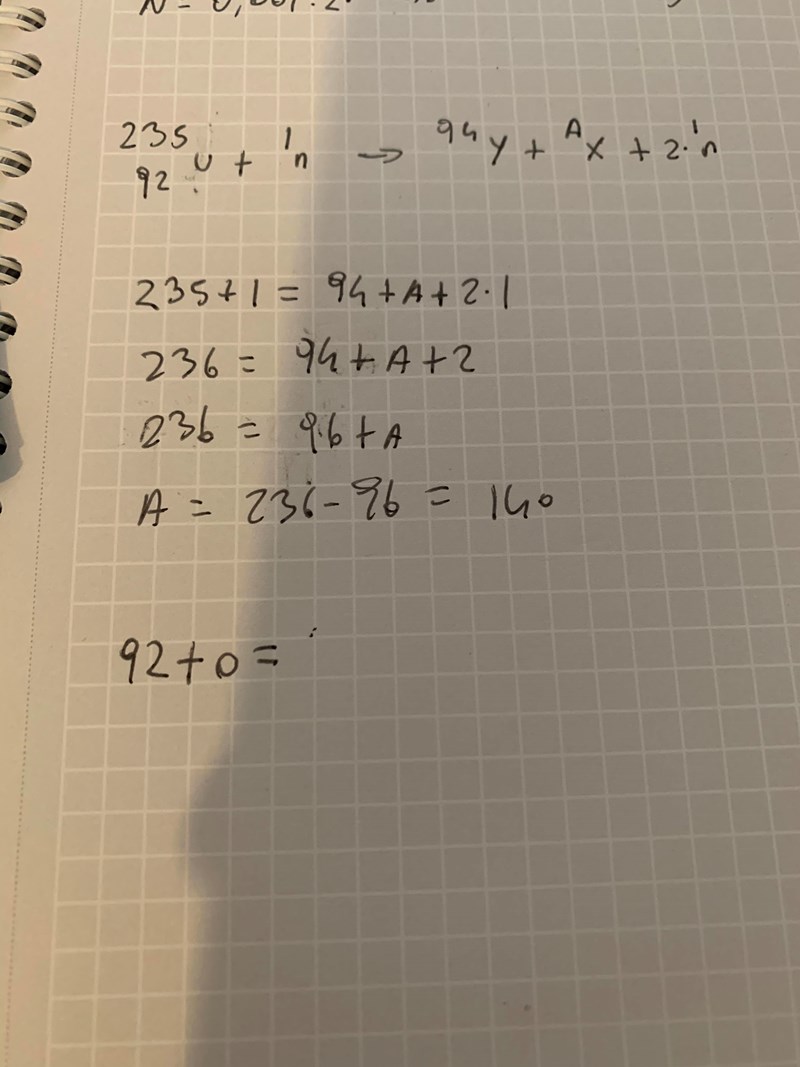 N = 0,001 · 2
²³⁵₉₂U + ¹n → ⁹⁴Y + ᴬX + 2·¹n
235+1 = 94+A+2·1
236 = 94+A+2
236 = 96+A
A = 236-96 = 140
92+0=